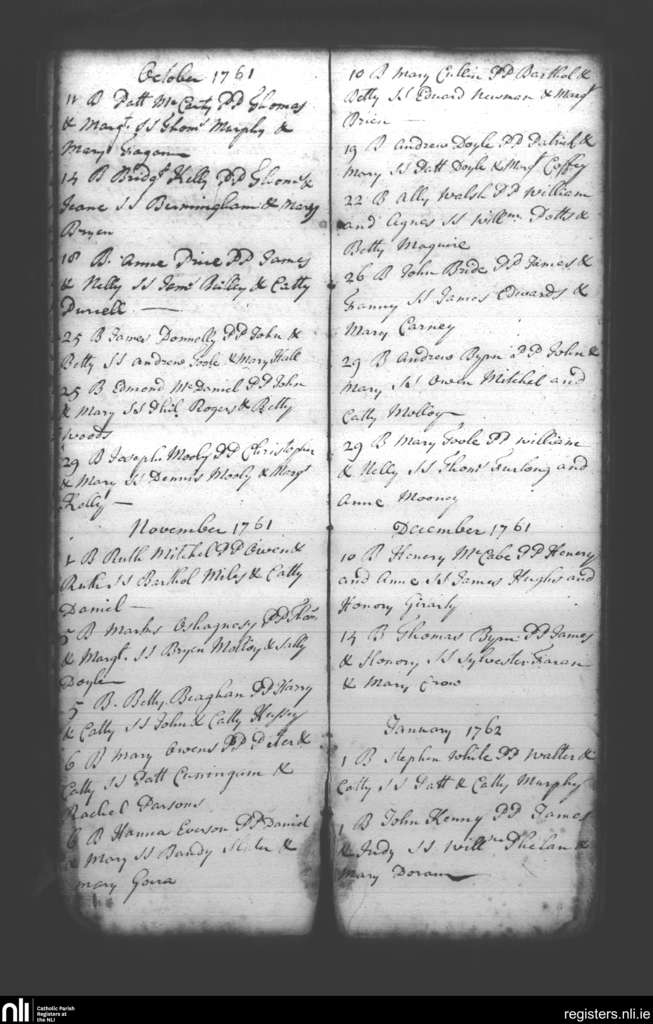 October 1761
11 B Patt McCarty PP Thomas
& Margt. SS Thoms Murphy &
Mary Fagan
14 B Bridgt Kelly PP Thoms &
Jeane SS Bermingham & Mary
Bryen
18 B. Anne Price PP James
& Nelly SS Jams & Catty
25 B James Donnelly PP John &
Betty SS Andrew Toole & Mary Hall
25 B Edmond McDaniel PP John
& Mary SS Phil. Rogers & Betty
Woods
29 B Joseph Mooly PP Christopher
& Mary SS Dennis Mooly & Margt
Kelly
November 1761
1 B Ruth Mitchel PP Owen &
Ruth SS Barthol Miles & Catty
Daniel
5 B Oshagnesy PP Thom
& Margt. SS Bryen Molloy & Sally
Doyle
5 B. Betty Beaghan PP Harry
& Catty SS John & Catty Hussey
6 B Mary Owens PP Peter &
Catty SS Patt Cuningam &
Rachel Parsons
6 B Hannea Everson PP Daniel
& Mary SS &
Mary
10 B Mary Cullin PP Barthol &
Betty SS Edward Newman & Margt
Brien
19 B Andrew Doyle PP Patrick &
Mary SS Patt Doyle & Margt Coffey
22 B Ally Walsh PP William
and Agnes SS Willm Potts &
Betty Maguire
26 B John Bride PP James &
Franny SS James Edwards &
Mary Carney
29 B Andrew Byrn PP John &
Mary SS Owen Mitchel and
Catty Molloy
29 B Mary Toole PP William
& Nelly SS Thoms Furlong and
Anne Mooney
December 1761
10 B Henery McCabe PP Henery
and Anne SS James Hughs and
Honory
14 B Thomas Byrn PP James
& Honory SS Sylvester Faran
& Mary Crow
January 1762
1 B Stephen While PP Walter &
Catty SS Patt & Catty Murphy
1 B John Kenny PP James
& Judy SS Willm Phelan &
Mary Doran
nli
Catholic Parish
Registers at
the NLI
registers.nli.ie